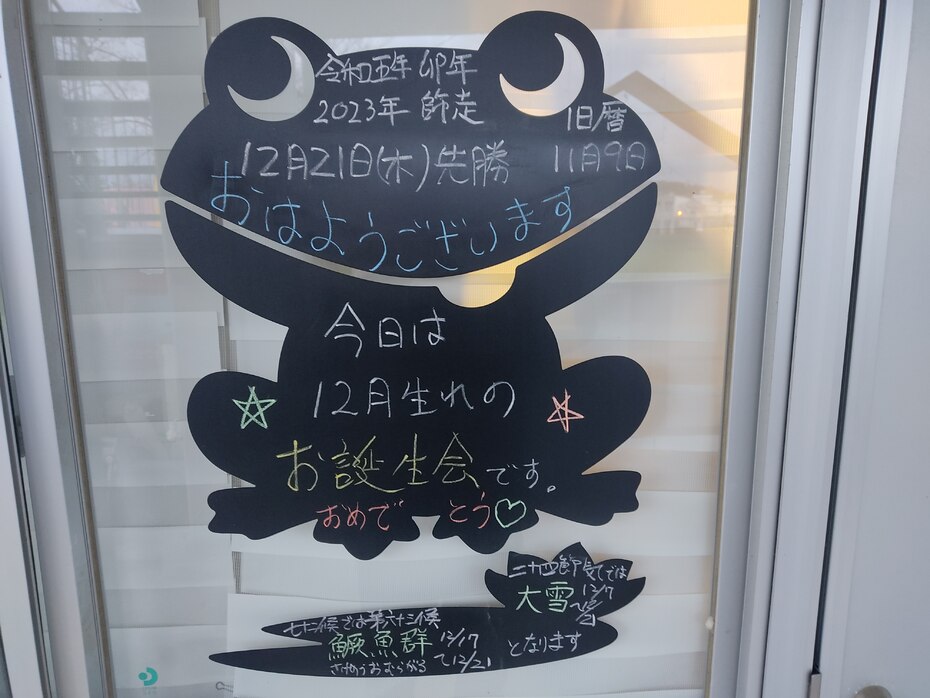 令和五年 卯年
2023年 師走
旧暦
12月21日(木)先勝 11月9日
おはようございます
今日は
12月生れの
お誕生会です。
おめでとう♡
二十四節気では
大雪 12/7~12/21
七十二候では第六十三候
鱖魚群 12/17~12/21
さけのうおむらがる
となります